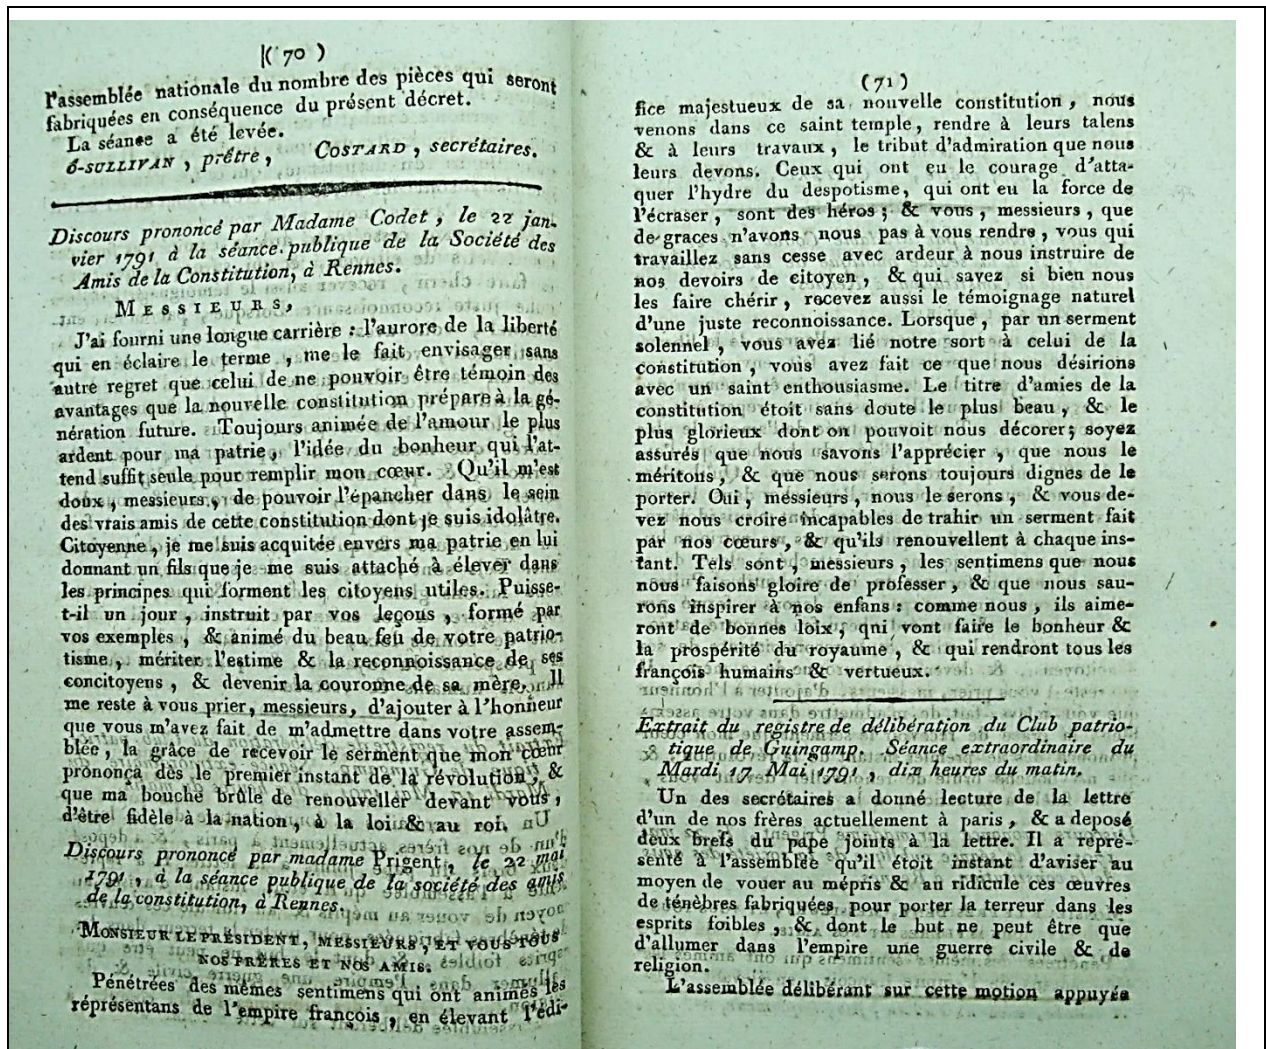 ( 70 )
l'assemblée nationale du nombre des pièces qui seront
fabriquées en conséquence du présent décret.
La séance a été levée.
ô-sullivan, prêtre, Costard, secrétaires.
Discours prononcé par Madame Codet, le 22 jan-
vier 1791 à la séance publique de la Société des
Amis de la Constitution, à Rennes.
Messieurs,
J'ai fourni une longue carrière : l'aurore de la liberté
qui en éclaire le terme, me le fait envisager sans
autre regret que celui de ne pouvoir être témoin des
avantages que la nouvelle constitution prépare à la gé-
nération future. Toujours animée de l'amour le plus
ardent pour ma patrie, l'idée du bonheur qui l'at-
tend suffit seule pour remplir mon cœur. Qu'il m'est
doux, messieurs, de pouvoir l'épancher dans le sein
des vrais amis de cette constitution dont je suis idolâtre.
Citoyenne, je me suis acquitée envers ma patrie en lui
donnant un fils que je me suis attaché à élever dans
les principes qui forment les citoyens utiles. Puisse-
t-il un jour, instruit par vos leçons, formé par
vos exemples, & animé du beau feu de votre patrio-
tisme, mériter l'estime & la reconnoissance de ses
concitoyens, & devenir la couronne de sa mère. Il
me reste à vous prier, messieurs, d'ajouter à l'honneur
que vous m'avez fait de m'admettre dans votre assem-
blée, la grâce de recevoir le serment que mon cœur
prononça dès le premier instant de la révolution, &
que ma bouche brûle de renouveller devant vous,
d'être fidèle à la nation, à la loi & au roi.
Discours prononcé par madame Prigent, le 22 mai
1791, à la séance publique de la société des amis
de la constitution, à Rennes.
Monsieur le président, messieurs, et vous tous
nos frères et nos amis.
Pénétrées des mêmes sentimens qui ont animés les
réprésentans de l'empire françois, en élevant l'édi-
( 71 )
fice majestueux de sa nouvelle constitution, nous
venons dans ce saint temple, rendre à leurs talens
& à leurs travaux, le tribut d'admiration que nous
leurs devons. Ceux qui ont eu le courage d'atta-
quer l'hydre du despotisme, qui ont eu la force de
l'écraser, sont des héros; & vous, messieurs, que
de graces n'avons nous pas à vous rendre, vous qui
travaillez sans cesse avec ardeur à nous instruire de
nos devoirs de citoyen, & qui savez si bien nous
les faire chérir, recevez aussi le témoignage naturel
d'une juste reconnoissance. Lorsque, par un serment
solennel, vous avez lié notre sort à celui de la
constitution, vous avez fait ce que nous désirions
avec un saint enthousiasme. Le titre d'amies de la
constitution étoit sans doute le plus beau, & le
plus glorieux dont on pouvoit nous décorer; soyez
assurés que nous savons l'apprécier, que nous le
méritons, & que nous serons toujours dignes de le
porter. Oui, messieurs, nous le serons, & vous de-
vez nous croire incapables de trahir un serment fait
par nos cœurs, & qu'ils renouvellent à chaque ins-
tant. Tels sont, messieurs, les sentimens que nous
nous faisons gloire de professer, & que nous sau-
rons inspirer à nos enfans : comme nous, ils aime-
ront de bonnes loix, qni vont faire le bonheur &
la prospérité du royaume, & qui rendront tous les
françois humains & vertueux.
Extrait du registre de délibération du Club patrio-
tique de Guingamp. Séance extraordinaire du
Mardi 17 Mai 1791, dix heures du matin.
Un des secrétaires a donné lecture de la lettre
d'un de nos frères actuellement à paris, & a deposé
deux brefs du pape joints à la lettre. Il a repré-
senté à l'assemblée qu'il étoit instant d'aviser au
moyen de vouer au mépris & au ridicule ces œuvres
de ténèbres fabriquées pour porter la terreur dans les
esprits foibles, & dont le but ne peut être que
d'allumer dans l'empire une guerre civile & de
religion.
L'assemblée délibérant sur cette motion appuyée